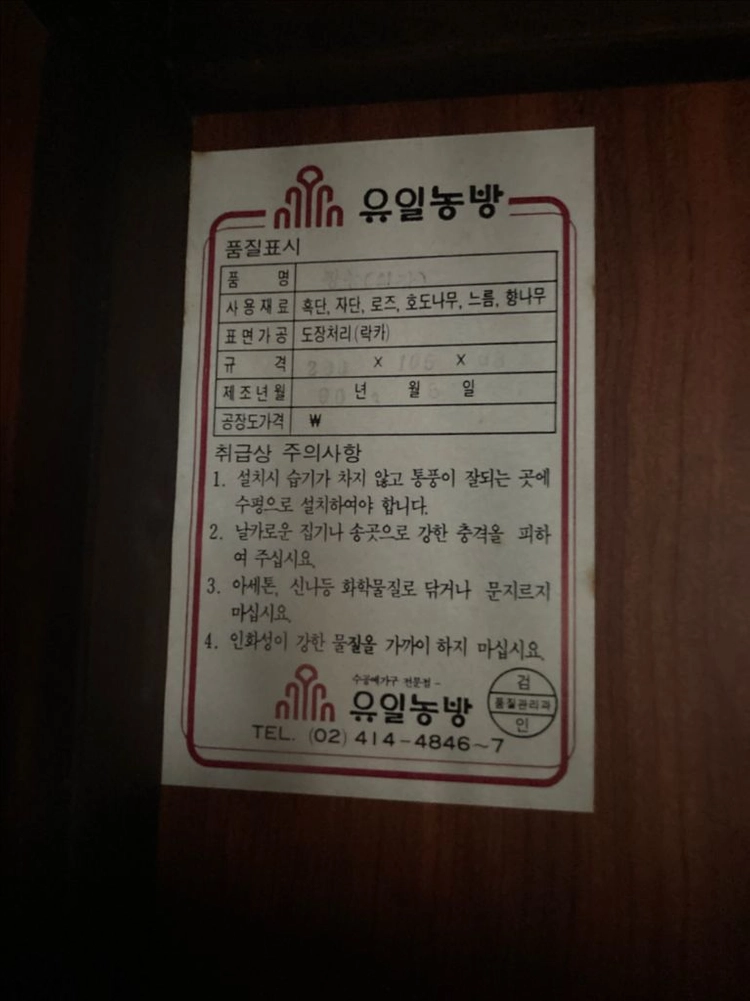 유일농방
품질표시
품 명
사용재료 흑단, 자단, 로즈, 호도나무, 느릅, 향나무
표면가공 도장처리(락카)
규 격 X X
제조년월 년 월 일
공장도가격 ₩
취급상 주의사항
1. 설치시 습기가 차지 않고 통풍이 잘되는 곳에
수평으로 설치하여야 합니다.
2. 날카로운 집기나 송곳으로 강한 충격을 피하
여 주십시요.
3. 아세톤, 신나등 화학물질로 닦거나 문지르지
마십시요.
4. 인화성이 강한 물질을 가까이 하지 마십시요.
수공예가구 전문점 -
유일농방
검
품질관리과
인
TEL. (02) 414-4846~7